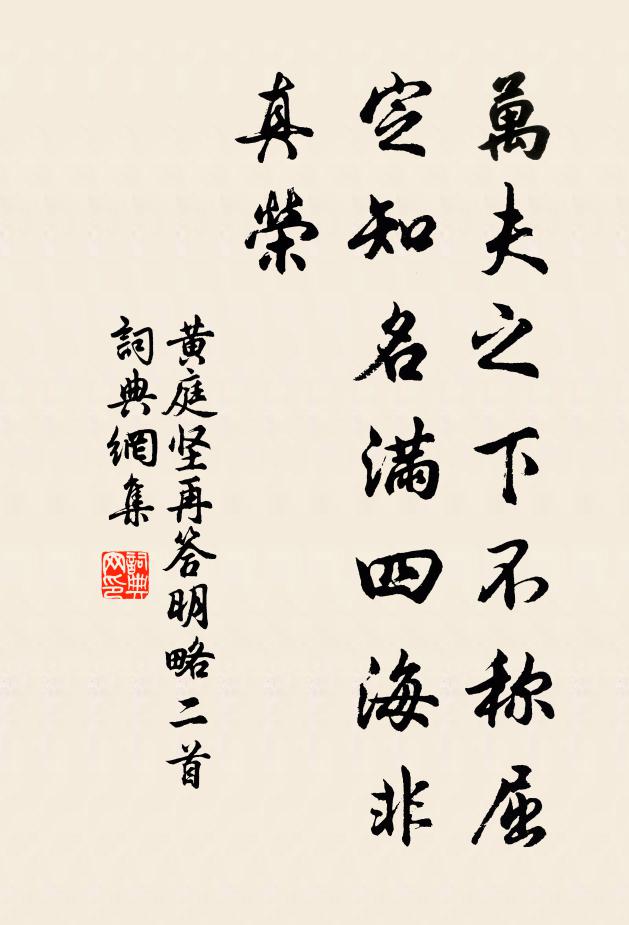 萬夫之下不称屈
定知名滿四海非
真榮
黄庭坚再答明略二首
詞典網集
詞典网印